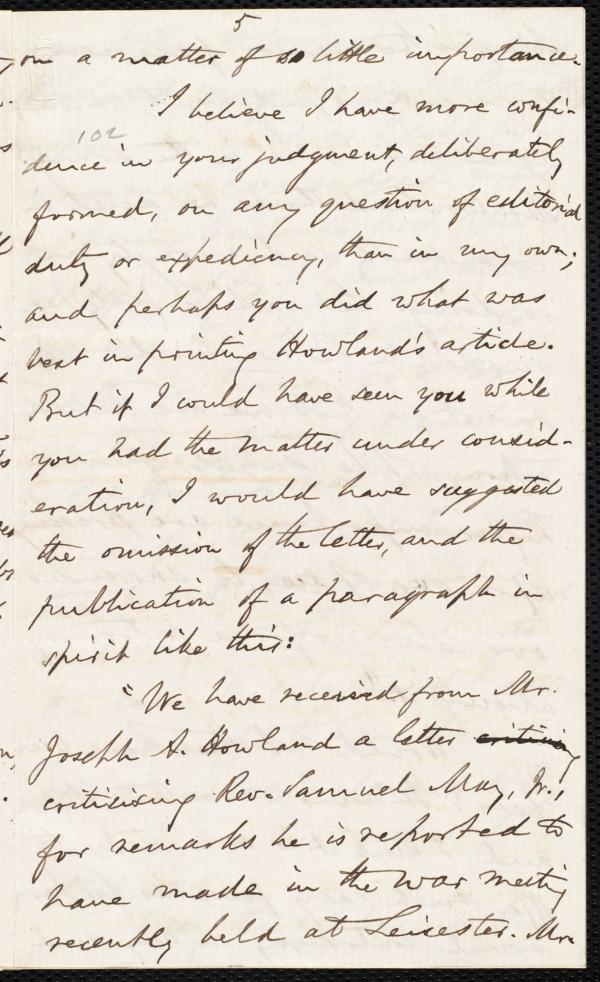 5
on a matter of so little importance.
I believe I have more confi-
102
dence in your judgment, deliberately
formed, on any question of editorial
duty or expediency, than in my own;
and perhaps you did what was
best in printing Howland's article.
But if I could have seen you while
you had the matter under consid-
eration, I would have suggested
the omission of the letter, and the
publication of a paragraph in
spirit like this:
"We have received from Mr.
Joseph A. Howland a letter
criticising Rev. Samuel May, Jr.,
for remarks he is reported to
have made in the war meeting
recently held at Leicester. Mr.